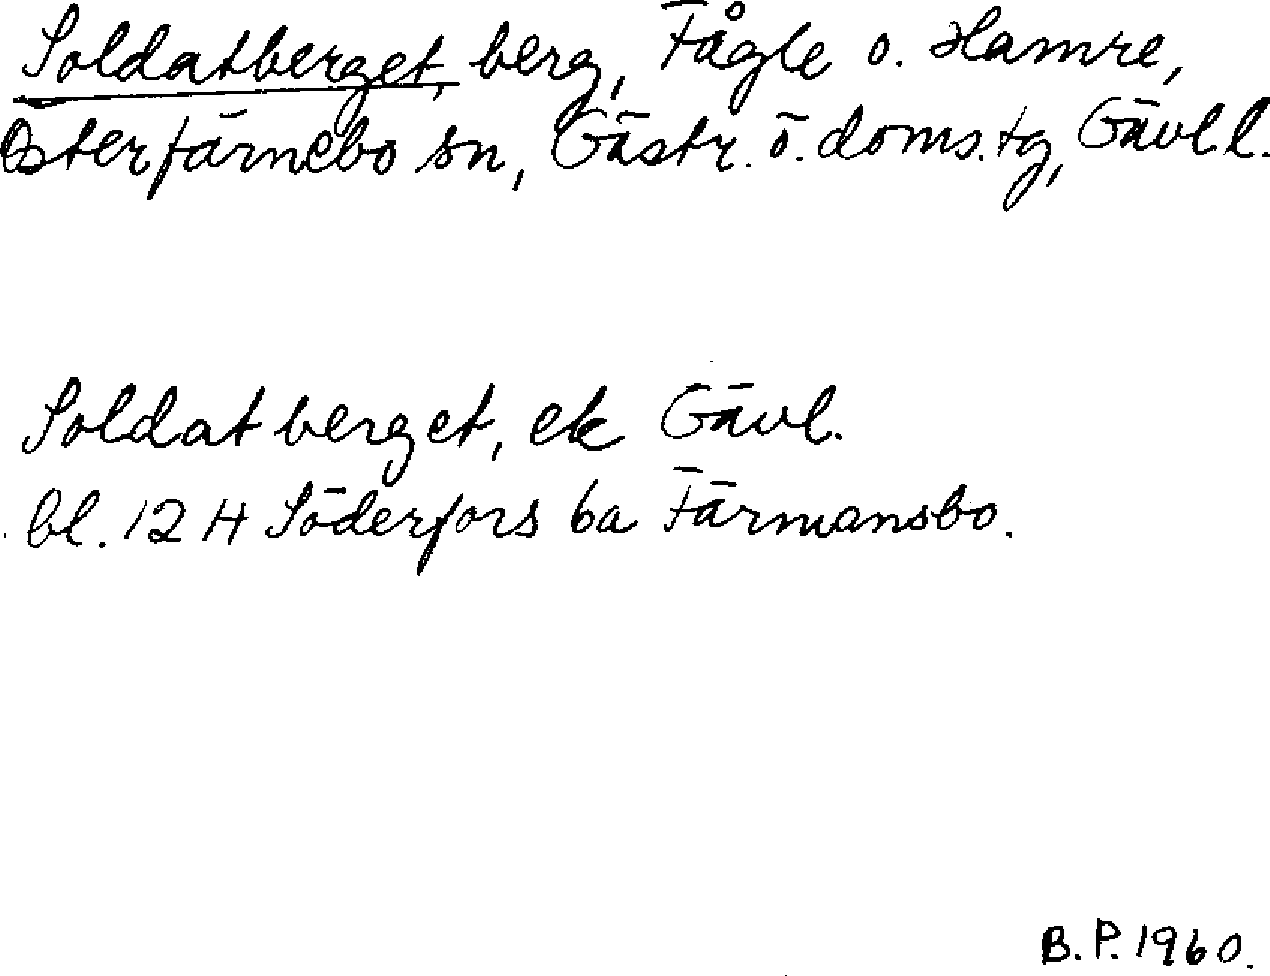 Soldatberget, berg, Fågle o. Hamre,
Österfärnebo sn, Gästr. ö. doms.tg, Gävl l.
Soldatberget, ek Gävl.
bl. 12 H Söderfors 6a Färmansbo.
B. P. 1960.